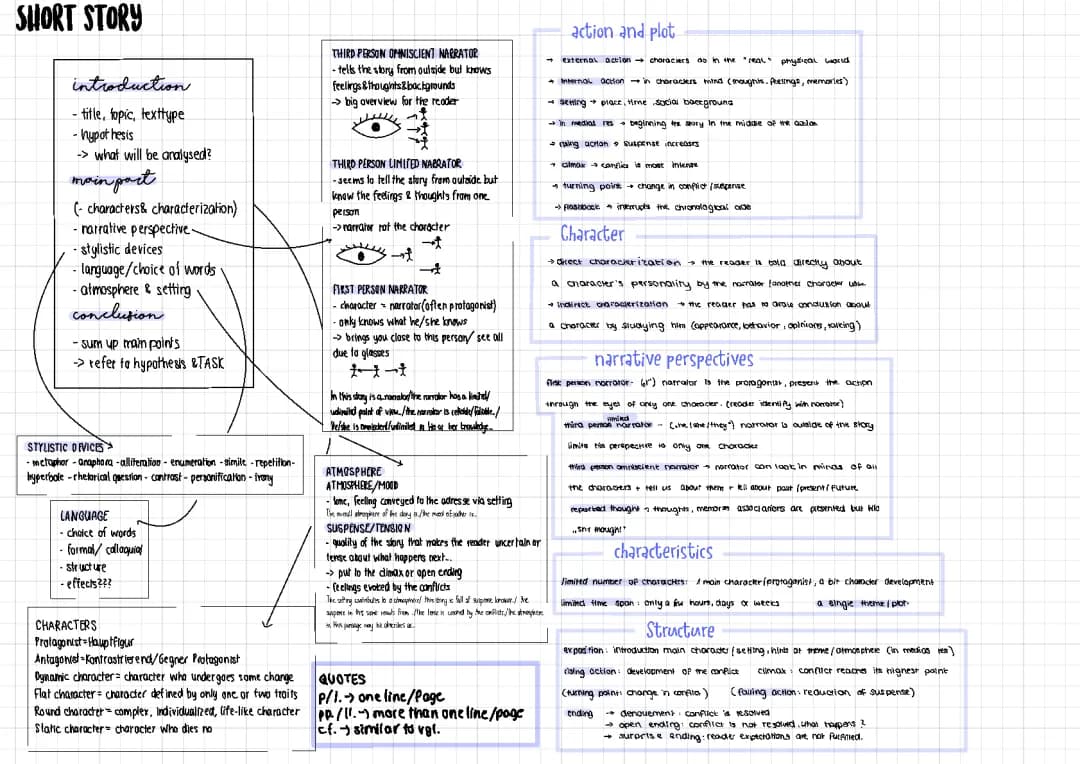 SHORT STORY
introduction
- title, topic, texttype
- hypothesis
-> what will be analysed?
main part
(- characters& characterization)
- narrative perspective
- stylistic devices
- language/choice of words
- atmosphere & setting
conclusion
- sum up main points
-> refer to hypothesis &TASK
STYLISTIC DEVICES
- metaphor - anaphora - alliteration - enumeration - simile - repetition-
hyperbole - rhetorical question - contrast - personification - irony
LANGUAGE
- choice of words
- formal/ colloquial
- structure
- effects???
CHARACTERS
Protagonist=Hauptfigur
Antagonist=Kontrastrierend/Gegner Protagonist
Dynamic character= character who undergoes some change
Flat character= character defined by only one or two traits
Round character= complex, individualized, life-like character
Static character= character who dies no
THIRD PERSON OMNISCIENT NARRATOR
- tells the story from outside but knows
feelings&thoughts&backgrounds
-> big overview for the reader
THIRD PERSON LIMITED NARRATOR
- seems to tell the story from outside but
know the feelings & thoughts from one
person
-> narrator not the character
FIRST PERSON NARRATOR
- character = narrator(often protagonist)
- only knows what he/she knows
-> brings you close to this person/ see all
due to glasses
In this story is a narrator/the narrator has a limited/
unlimited point of view./the narrator is reliable/fallible./
He/she is omniscient/unlimited in his or her knowledge.
ATMOSPHERE
ATMOSPHERE/MOOD
- tone, feeling conveyed to the adresse via setting
The overall atmosphere of the story is./the mood of author is..
SUSPENSE/TENSION
- quality of the story that makes the reader uncertain or
tense about what happens next...
-> put to the climax or open ending
- feelings evoked by the conflicts
The setting contributes to a atmosphere/ This story is full of suspense because./ The
suspense in this scene results from../The tense is caused by the conflicts/the atmosphere
in this passage may be described as..
QUOTES
p/l. -> one line/page
pp./ll. -> more than one line/page
cf. -> similar to vgl.
action and plot
→ external action → characters do in the "real" physical world
→ internal action → in characters mind (thoughts, feelings, memories)
→ setting → place, time, social background
→ in medias res → beginning the story in the middle of the action
→ rising action → suspense increases
→ climax → conflict is most intense
→ turning point → change in conflict/suspense
→ flashback → interrupts the chronological
Character
→ direct characterization → the reader is told directly about
a character's personality by the narrator/another character
→ indirect characterization → the reader has to draw conclusion about
a character by studying him (appearance, behavior, opinions, talking)
narrative perspectives
first person narrator - ("I") narrator is the protagonist, present the action
through the eyes of only one character. (reader identify with narrator)
limited
third person narrator - ("he/she/they") narrator is outside of the story
limits his perspective to only one character
third person omniscient narrator → narrator can look in minds of all
the characters + tell us about them + tell about past/present/future
reported thought → thoughts, memories associations are presented but like
characteristics
limited number of characters: 1 main character(protagonist), a bit character development
limited time span: only a few hours, days or weeks a single theme/plot
Structure
exposition: introduction main character/setting, hints at theme/atmosphere (in medias res)
rising action: development of the conflict climax: conflict reaches its highest point
(turning point: change in conflict) (falling action: reduction of suspense)
ending → denouement: conflict is resolved
→ open ending: conflict is not resolved, what happens?
→ surprise ending: reader expectations are not fulfilled.